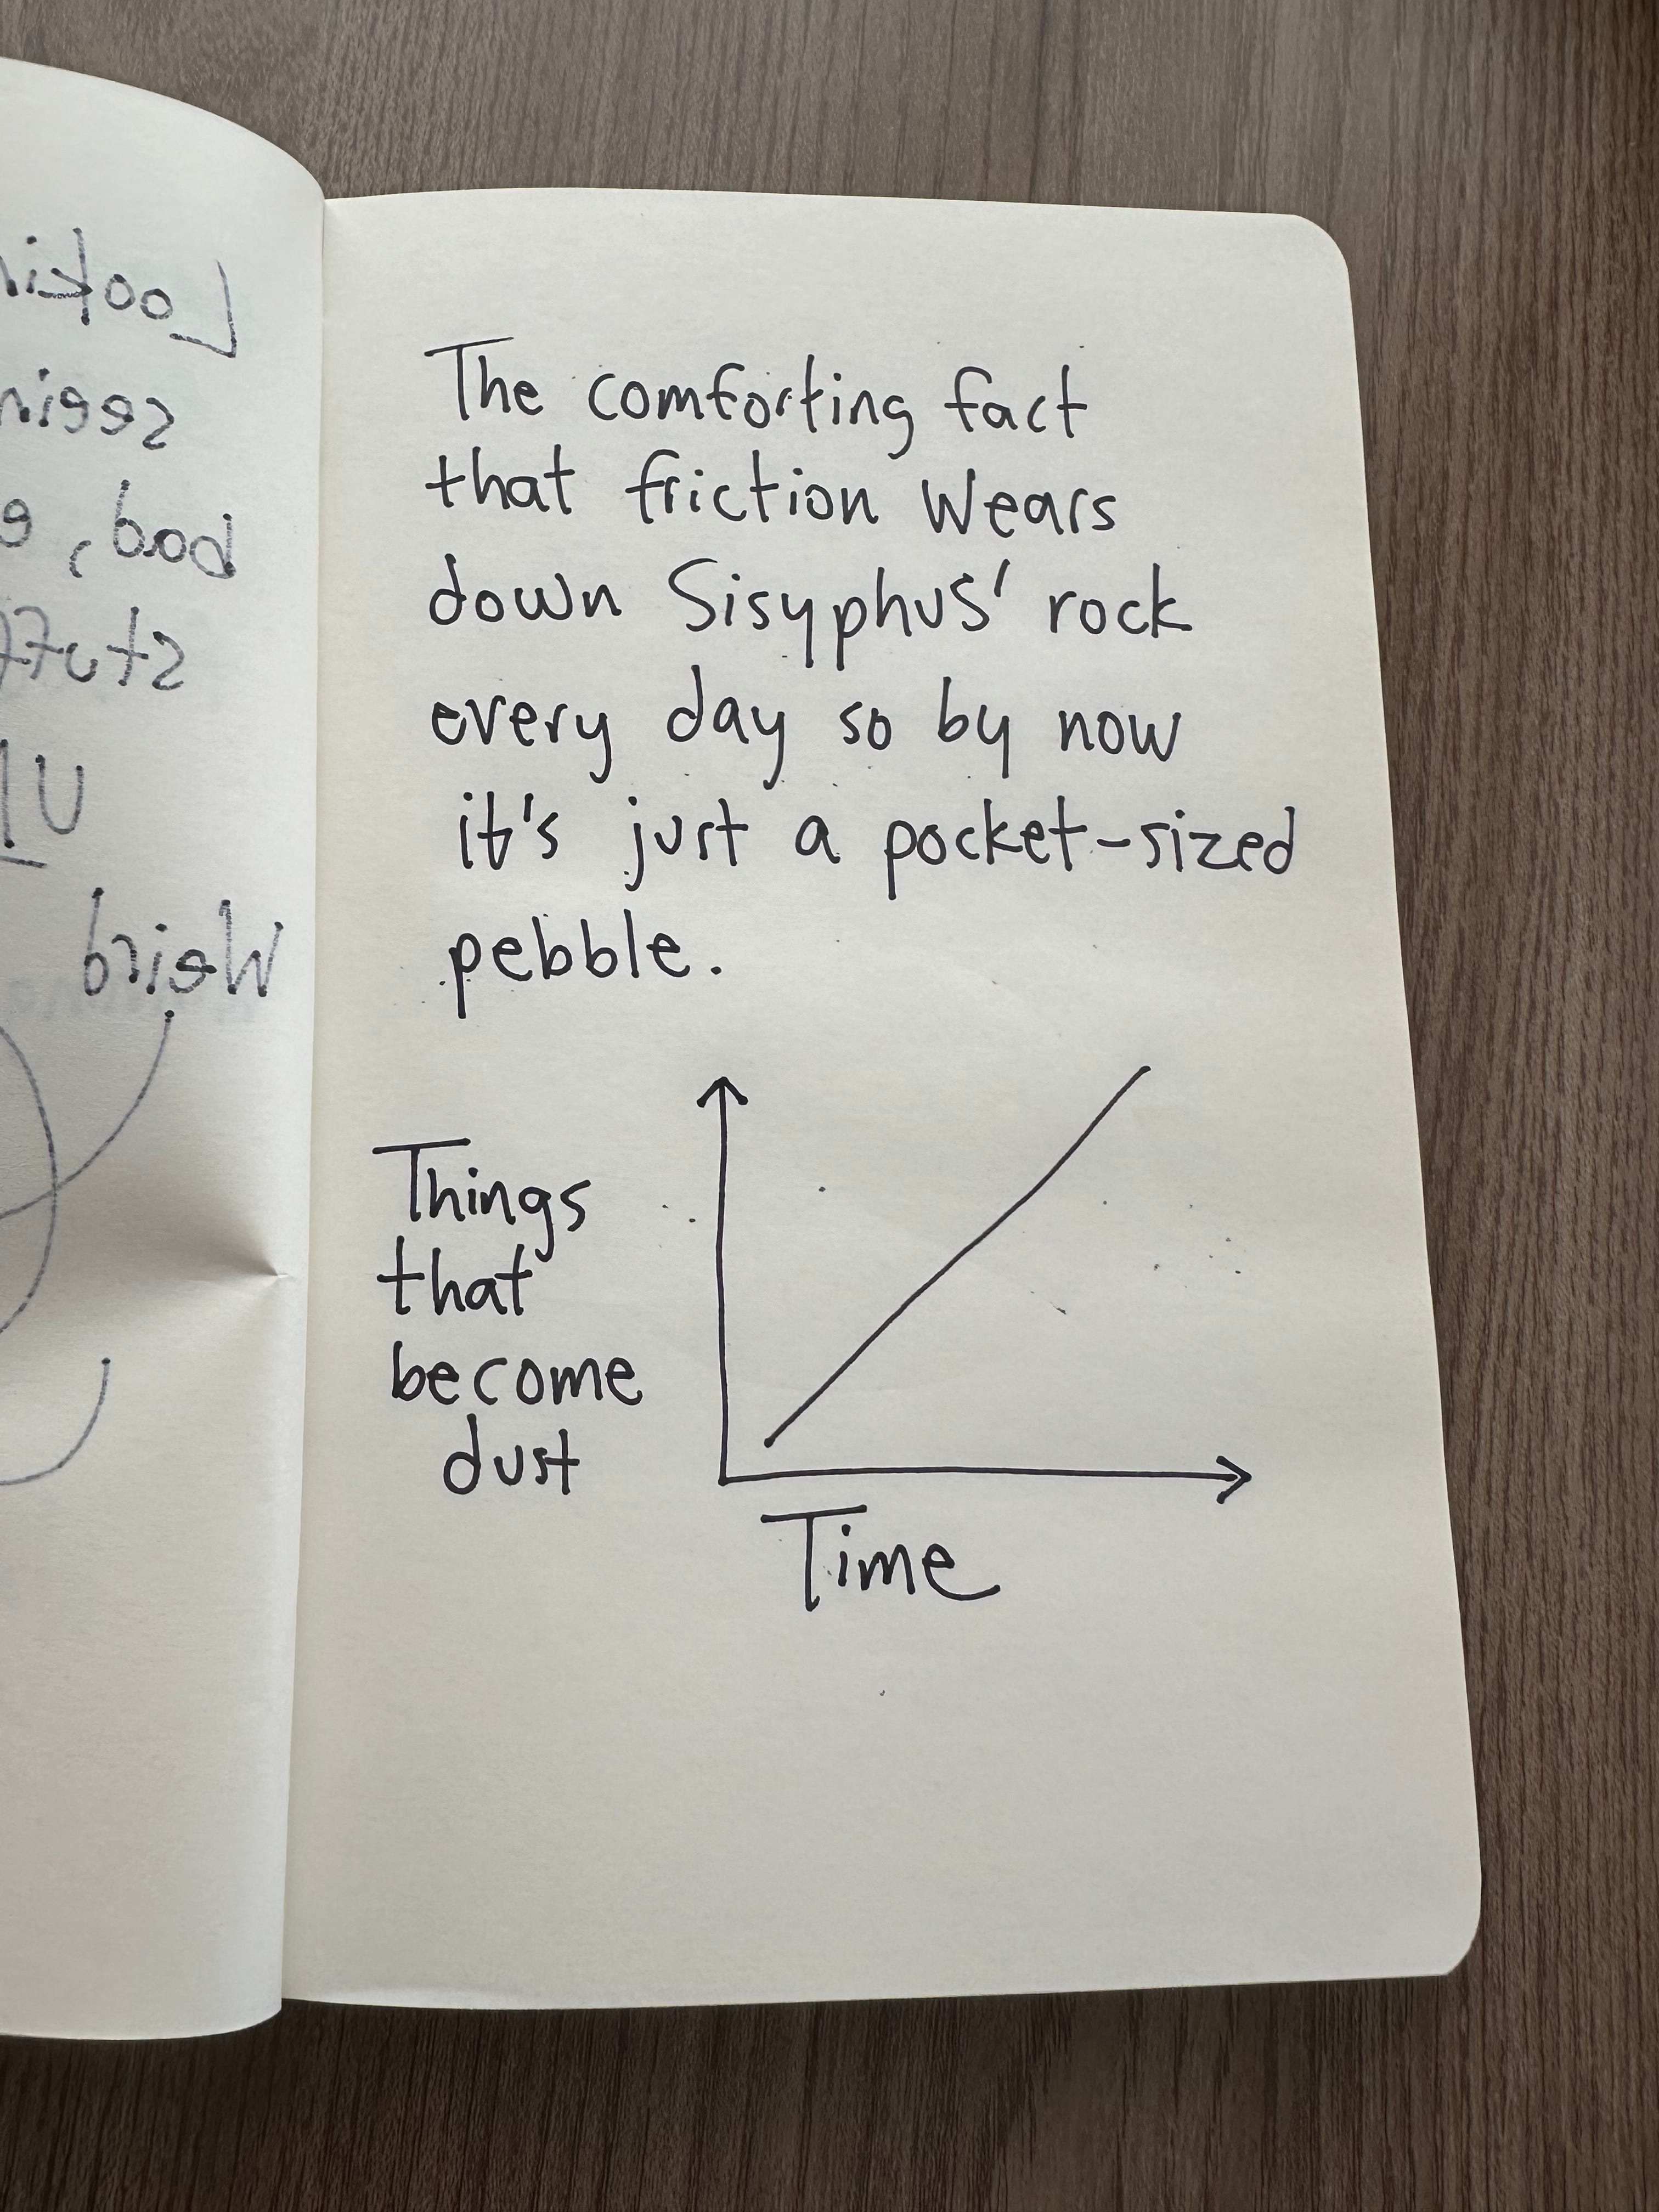 The comforting fact
that friction wears
down Sisyphus' rock
every day so by now
it's just a pocket-sized
pebble.
Things
that
become
dust
Time
bad,
Weird